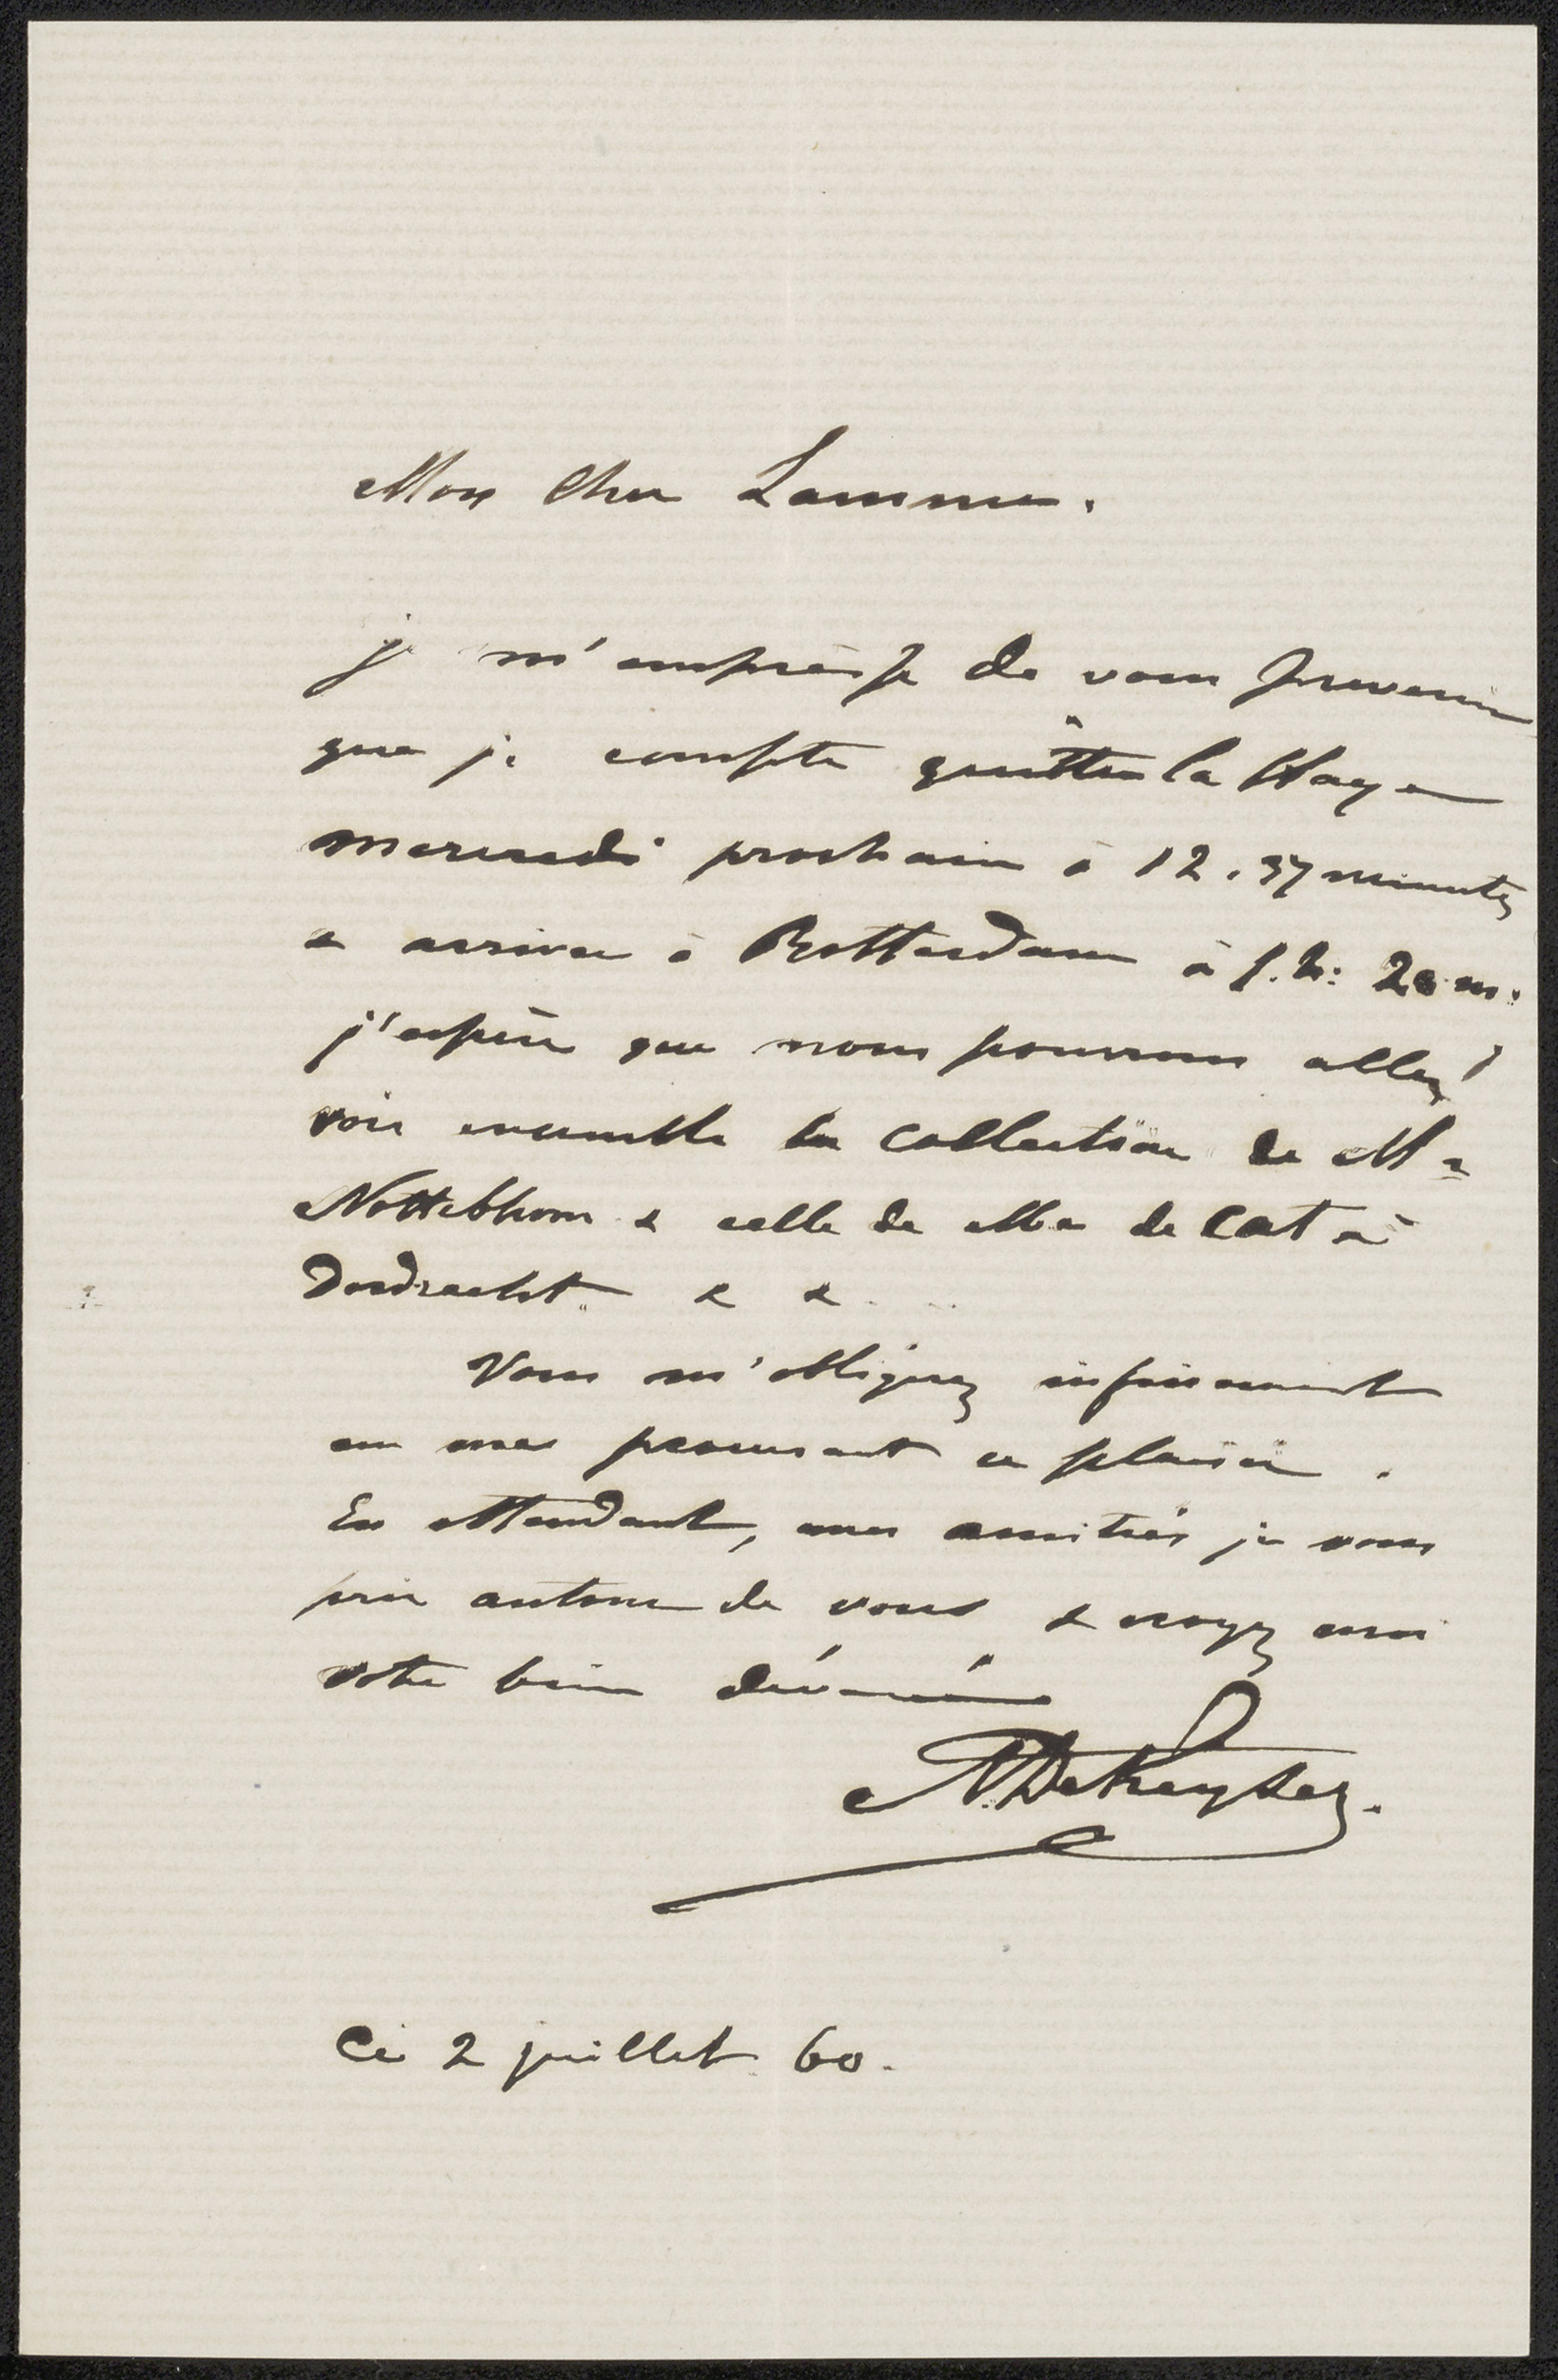 Mon Cher Lamme.
je m'empresse de vous prevenir
que je compte quitter la Haye
mercredi prochain à 12.37 minutes
& arriver à Rotterdam à 1.h: 20 m.
j'espère que nous pourrons aller
voir ensemble la Collection de Mr
Nottebhom & celle de Mr de Cat à
Dordrecht & &.
Vous m'obligerez infiniment
en me procurant ce plaisir.
En attendant, mes amitiés je vous
prie autour de vous & croyez moi
votre bien dévoué
N. De Keyser.
Ce 2 juillet 60.